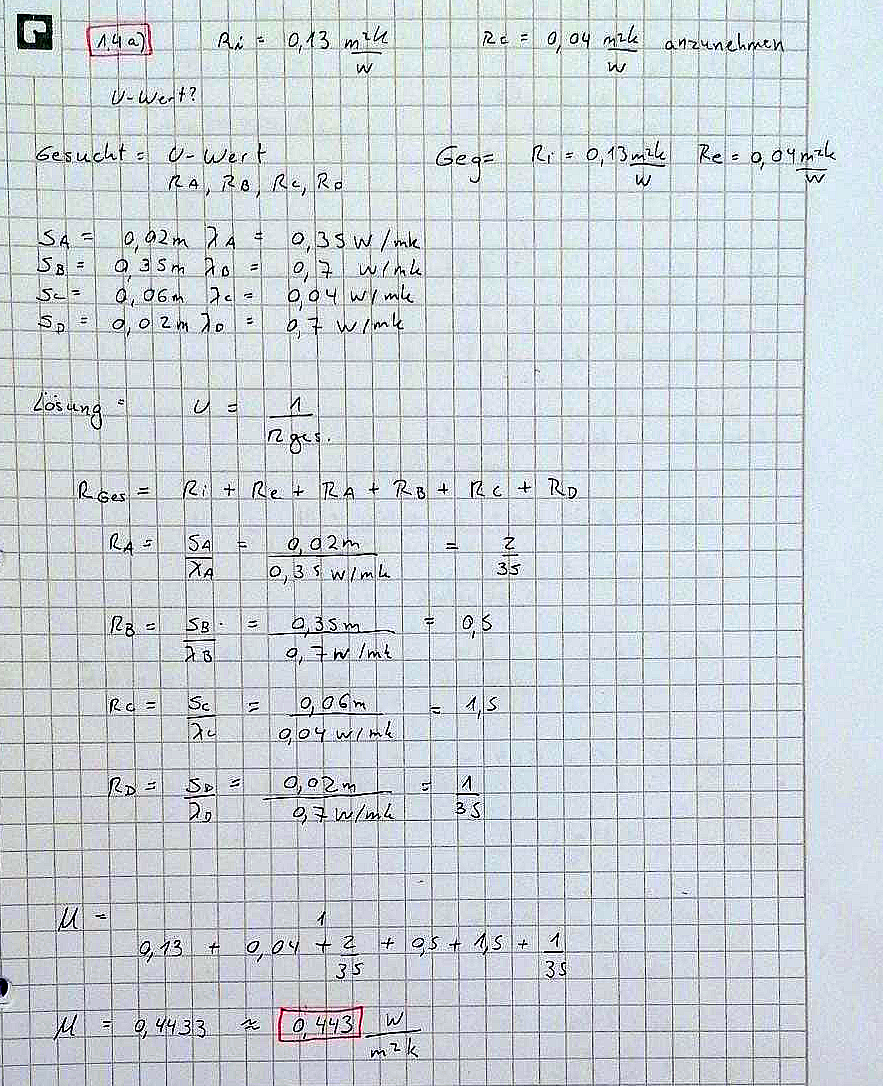 1.4 a) Ri = 0,13 m²k/W Re = 0,04 m²k/W anzunehmen
U-Wert?
Gesucht = U-Wert Geg= Ri = 0,13 m²k/W Re = 0,04 m²k/W
RA, RB, RC, RD
SA = 0,02m λA = 0,35 W/mk
SB = 0,35m λB = 0,7 W/mk
SC = 0,06m λC = 0,04 W/mk
SD = 0,02m λD = 0,7 W/mk
Lösung = U = 1/Rges.
RGes = Ri + Re + RA + RB + RC + RD
RA = SA/λA = 0,02m/0,35 W/mk = 2/35
RB = SB/λB = 0,35m/0,7 W/mk = 0,5
RC = SC/λC = 0,06m/0,04 W/mk = 1,5
RD = SD/λD = 0,02m/0,7 W/mk = 1/35
U = 1/0,13 + 0,04 + 2/35 + 0,5 + 1,5 + 1/35
U = 0,4433 ≈ 0,443 W/m²k